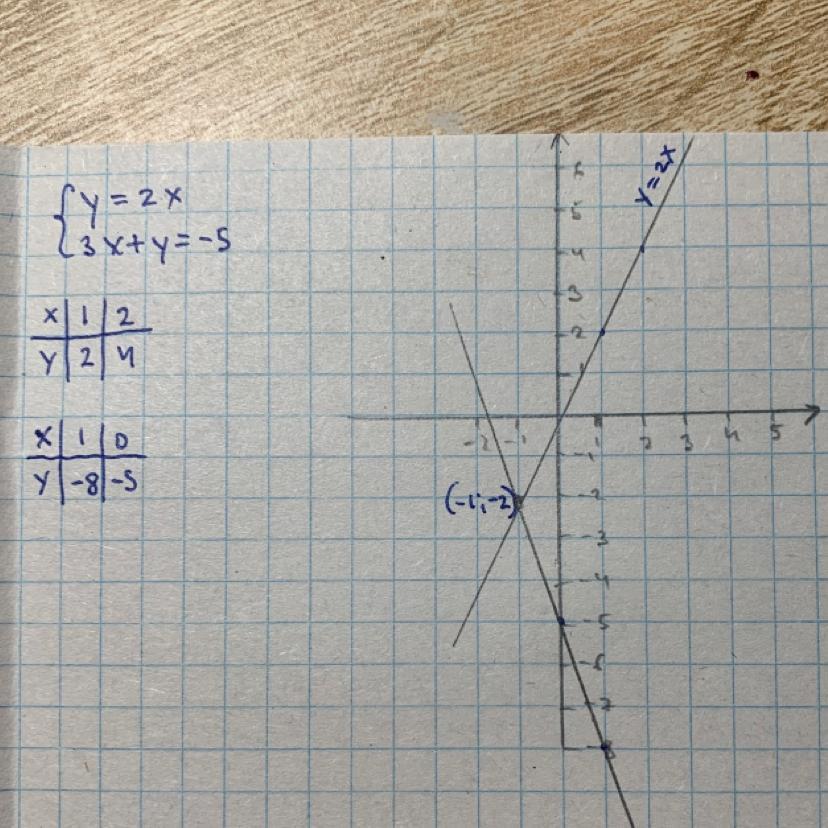 { y = 2x
3x+y=-5
x | 1 | 2
y | 2 | 4
x | 1 | 0
y | -8 | -5
y=2x
6
5
4
3
2
1
-2 -1 1 2 3 4 5
-1
(-1;-2) -2
-3
-4
-5
-6
-7
-8